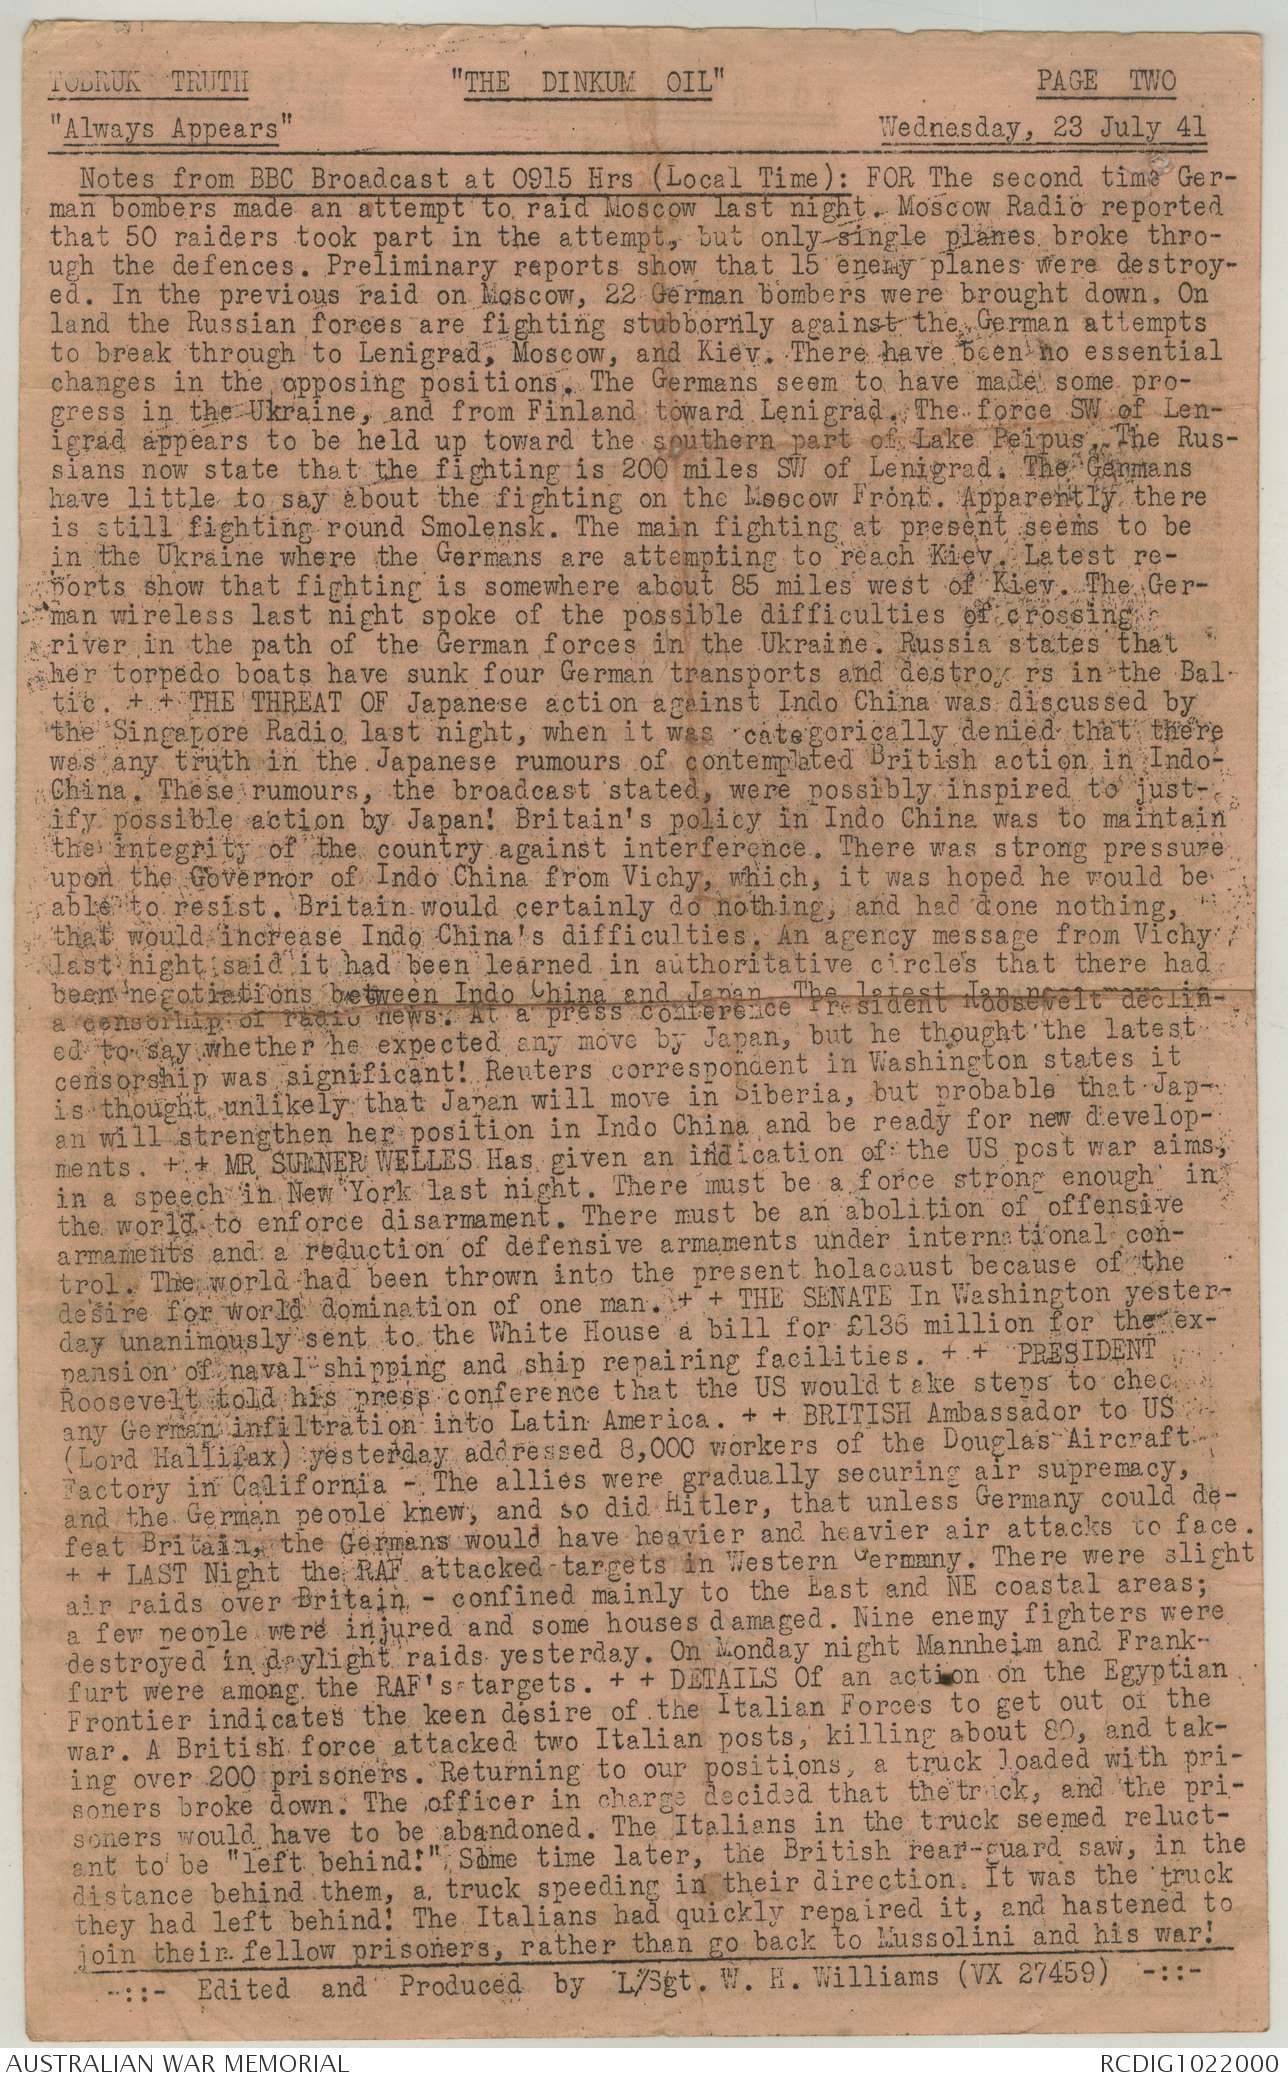 TOBRUK TRUTH "THE DINKUM OIL" PAGE TWO
"Always Appears" Wednesday, 23 July 41
Notes from BBC Broadcast at 0915 Hrs (Local Time): FOR The second time Ger-
man bombers made an attempt to raid Moscow last night. Moscow Radio reported
that 50 raiders took part in the attempt, but only single planes broke thro-
ugh the defences. Preliminary reports show that 15 enemy planes were destroy-
ed. In the previous raid on Moscow, 22 German bombers were brought down. On
land the Russian forces are fighting stubbornly against the German attempts
to break through to Lenigrad, Moscow, and Kiev. There have been no essential
changes in the opposing positions. The Germans seem to have made some pro-
gress in the Ukraine, and from Finland toward Lenigrad. The force SW of Len-
igrad appears to be held up toward the southern part of Lake Peipus. The Rus-
sians now state that the fighting is 200 miles SW of Lenigrad. The Germans
have little to say about the fighting on the Moscow Front. Apparently there
is still fighting round Smolensk. The main fighting at present seems to be
in the Ukraine where the Germans are attempting to reach Kiev. Latest re-
ports show that fighting is somewhere about 85 miles west of Kiev. The Ger-
man wireless last night spoke of the possible difficulties of crossing
river in the path of the German forces in the Ukraine. Russia states that
her torpedo boats have sunk four German transports and destroy rs in the Bal-
tic. + + THE THREAT OF Japanese action against Indo China was discussed by
the Singapore Radio last night, when it was categorically denied that there
was any truth in the Japanese rumours of contemplated British action in Indo-
China. These rumours, the broadcast stated, were possibly inspired to just-
ify possible action by Japan! Britain's policy in Indo China was to maintain
the integrity of the country against interference. There was strong pressure
upon the Governor of Indo China from Vichy, which, it was hoped he would be
able to resist. Britain would certainly do nothing, and had done nothing,
that would increase Indo China's difficulties. An agency message from Vichy
last night said it had been learned in authoritative circles that there had
been negotiations between Indo China and Japan. The latest
a censorhip of radio news. At a press conference President Roosevelt declin-
ed to say whether he expected any move by Japan, but he thought the latest
censorship was significant! Reuters correspondent in Washington states it
is thought unlikely that Japan will move in Siberia, but probable that Jap-
an will strengthen her position in Indo China and be ready for new develop-
ments. + + MR SUMNER WELLES Has given an indication of the US post war aims,
in a speech in New York last night. There must be a force strong enough in
the world to enforce disarmament. There must be an abolition of offensive
armaments and a reduction of defensive armaments under international con-
trol. The world had been thrown into the present holacaust because of the
desire for world domination of one man. + + THE SENATE In Washington yester-
day unanimously sent to the White House a bill for £136 million for the ex-
pansion of naval shipping and ship repairing facilities. + + PRESIDENT
Roosevelt told his press conference that the US would take steps to chec
any German infiltration into Latin America. + + BRITISH Ambassador to US
(Lord Hallifax) yesterday addressed 8,000 workers of the Douglas Aircraft
Factory in California - The allies were gradually securing air supremacy,
and the German people knew, and so did Hitler, that unless Germany could de-
feat Britain, the Germans would have heavier and heavier air attacks to face.
+ + LAST Night the RAF attacked targets in Western Germany. There were slight
air raids over Britain - confined mainly to the East and NE coastal areas;
a few people were injured and some houses damaged. Nine enemy fighters were
destroyed in daylight raids yesterday. On Monday night Mannheim and Frank-
furt were among the RAF's targets. + + DETAILS Of an action on the Egyptian
Frontier indicates the keen desire of the Italian Forces to get out of the
war. A British force attacked two Italian posts, killing about 80, and tak-
ing over 200 prisoners. Returning to our positions, a truck loaded with pri-
soners broke down. The officer in charge decided that the truck, and the pri-
soners would have to be abandoned. The Italians in the truck seemed reluct-
ant to be "left behind!" Some time later, the British rear-guard saw, in the
distance behind them, a truck speeding in their direction. It was the truck
they had left behind! The Italians had quickly repaired it, and hastened to
join their fellow prisoners, rather than go back to Mussolini and his war!
-::- Edited and Produced by L/Sgt. W. H. Williams (VX 27459) -::-
AUSTRALIAN WAR MEMORIAL RCDIG1022000